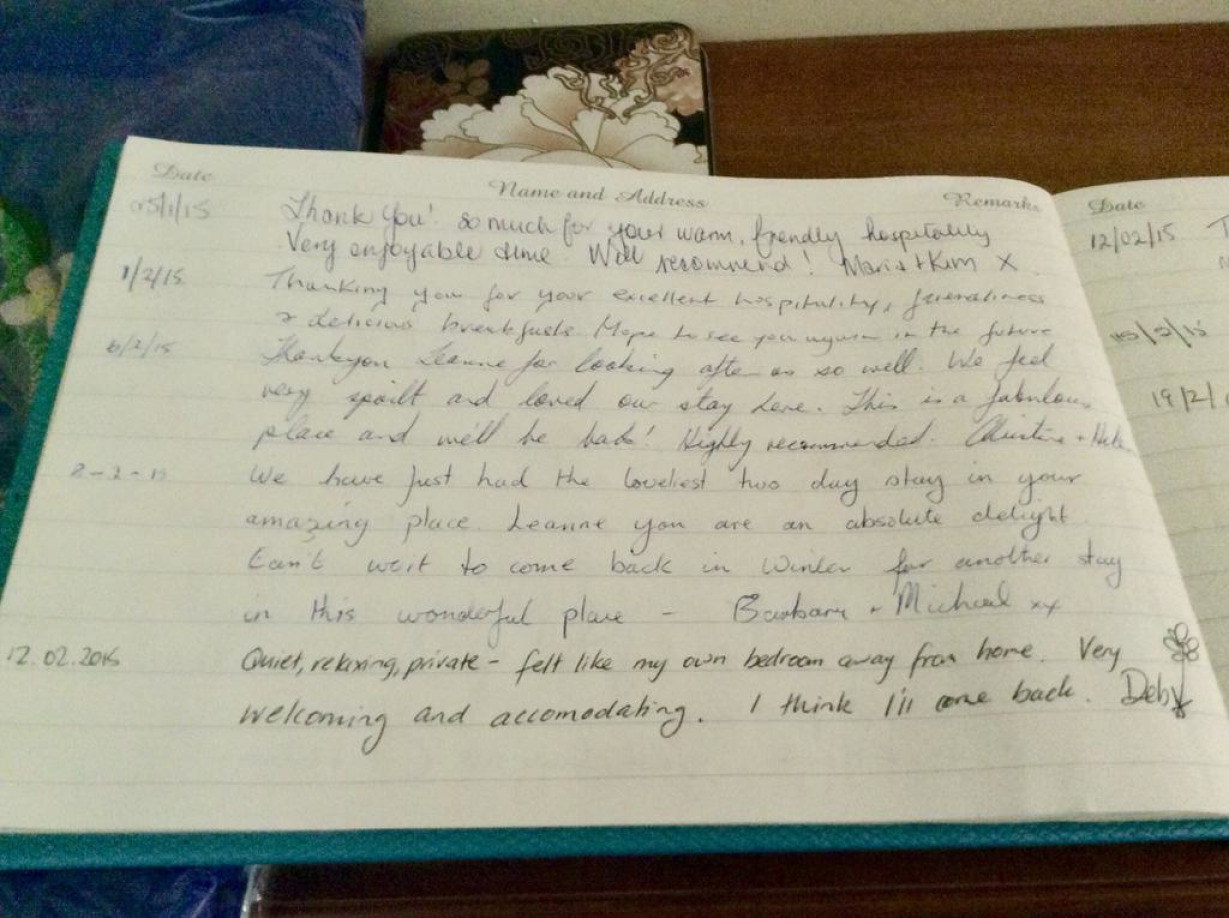 Date Name and Address Remarks
25/1/15 Thank You! so much for your warm, frendly hospitality
Very enjoyable time. Will recommend! Maria + Kim X
1/2/15 Thanking you for your excellent hospitality, friendliness
& delicious breakfasts. Hope to see you again in the future
6/2/15 Thankyou Leanne for looking after us so well. We feel
very spoilt and loved our stay here. This is a fabulous
place and we'll be back! Highly recommended. Christine +
8-2-15 We have just had the loveliest two day stay in your
amazing place. Leanne you are an absolute delight
Can't wait to come back in Winter for another stay
in this wonderful place - Barbara + Michael xx
12.02.2015 Quiet, relaxing, private - felt like my own bedroom away from home. Very
welcoming and accomodating. I think I'll come back. Deby
Date
12/02/15
15/2/15
19/2/